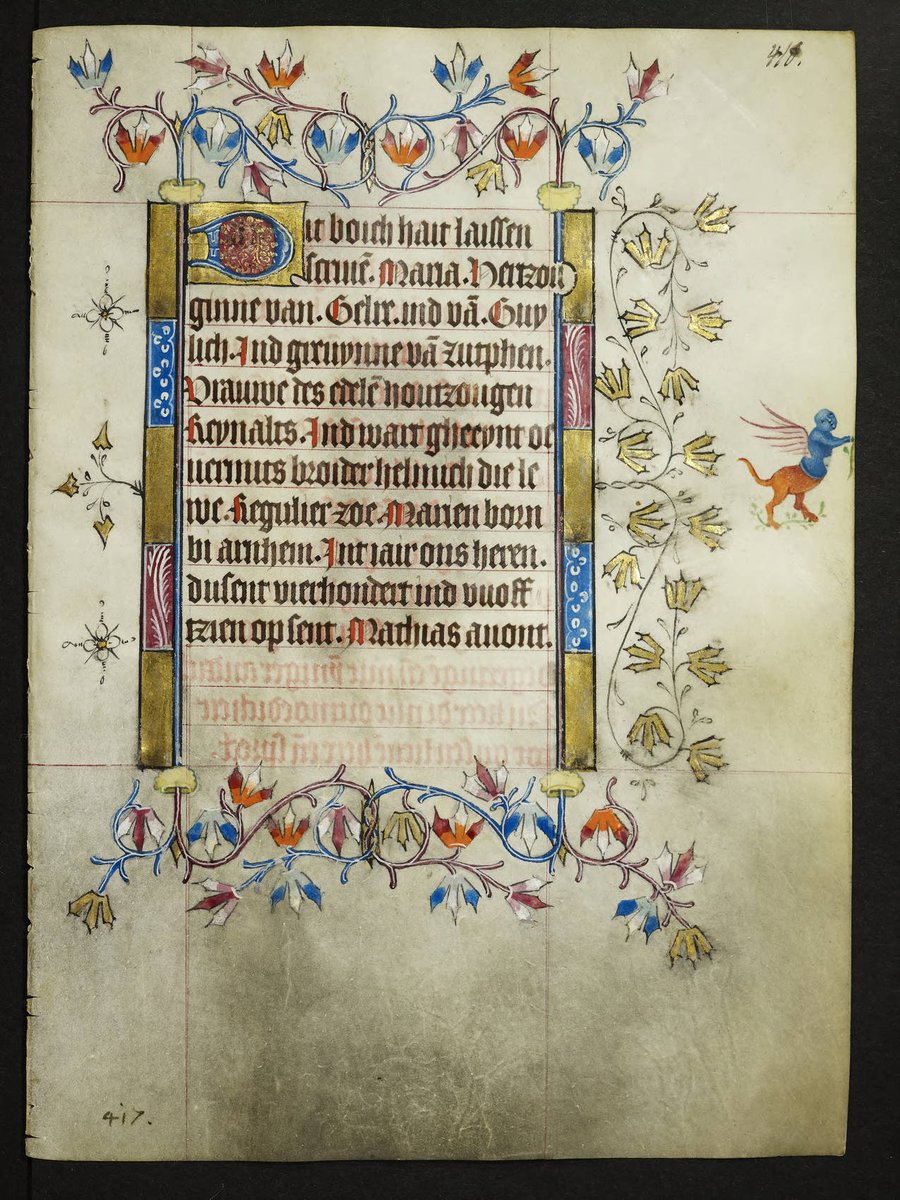 416.
Dit boich hait laissen
scriuē. Maria. Hertzou
ginne van. Gelre. ind vā. Guy
lich. Ind greuynne vā zutphen.
Vrauwe des edelē hontzougen
Reynalts. Ind wart gheeynt ou
uermits broider helmich die le
we. Regulier zoe. Marien born
bi arnhem. Int iair ons heren.
dusent vierhondert ind vuoff
tzien op sent. Mathias auont.
417.